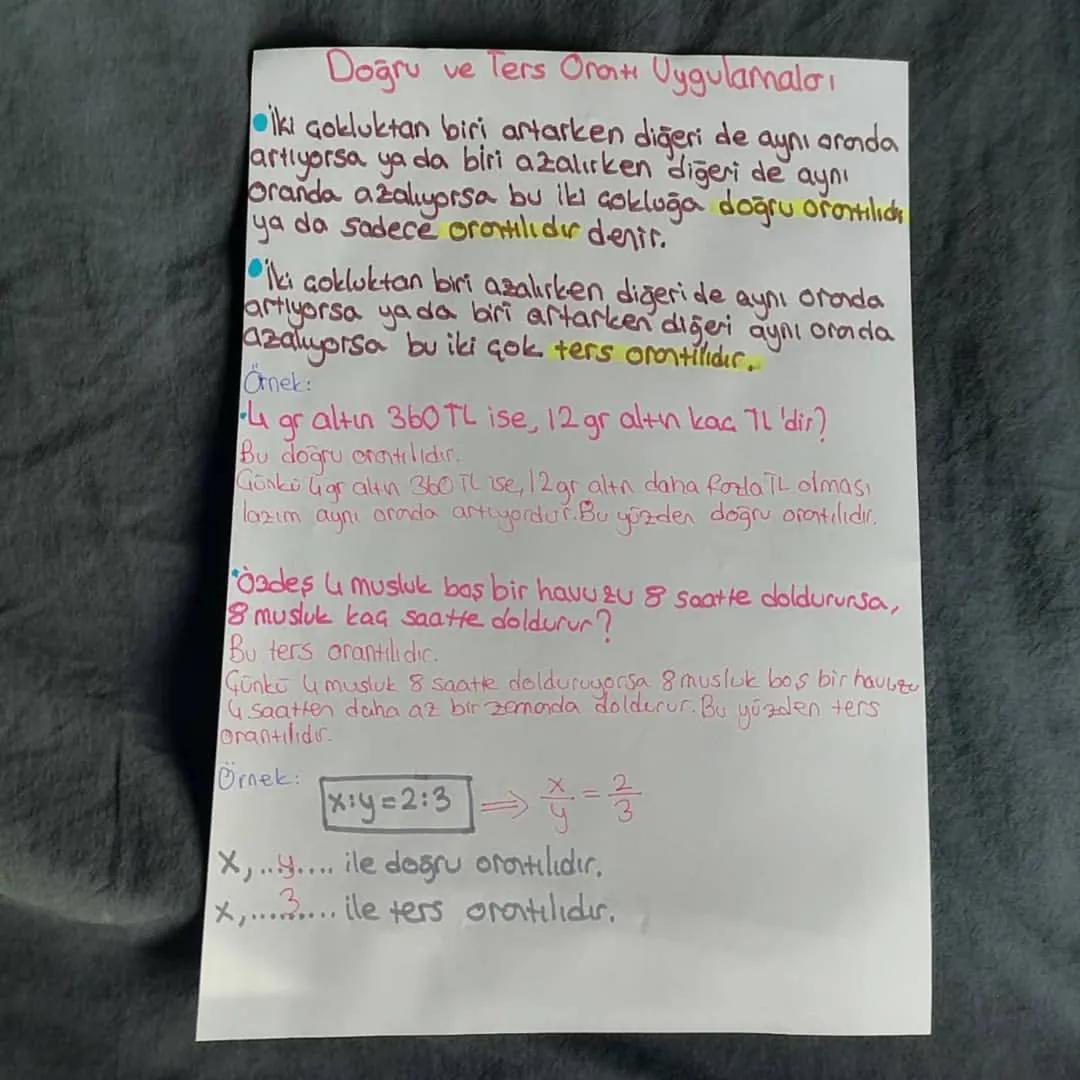 Doğru ve Ters Orantı Uygulamaları
•İki çokluktan biri artarken diğeri de aynı oranda
artıyorsa ya da biri azalırken diğeri de aynı
oranda azalıyorsa bu iki çokluğa doğru orantılıdır
ya da sadece orantılıdır denir.
•İki çokluktan biri azalırken diğeri de aynı oranda
artıyorsa ya da biri artarken diğeri aynı oranda
azalıyorsa bu iki çok ters orantılıdır.
Örnek:
•4 gr altın 360 TL ise, 12 gr altın kaç TL'dir?
Bu doğru orantılıdır.
Çünkü 4 gr altın 360 TL ise, 12 gr altn daha fazla TL olması
lazım aynı oranda artıyordur. Bu yüzden doğru orantılıdır.
•Özdeş 4 musluk boş bir havuzu 8 saatte doldurursa,
8 musluk kaç saatte doldurur?
Bu ters orantılıdır.
Çünkü 4 musluk 8 saatte dolduruyorsa 8 musluk boş bir havuzu
4 saatten daha az bir zamanda doldurur. Bu yüzden ters
orantılıdır.
Örnek:
x:y=2:3 ⟹ x/y = 2/3
x,..y.... ile doğru orantılıdır.
x,....3..... ile ters orantılıdır.